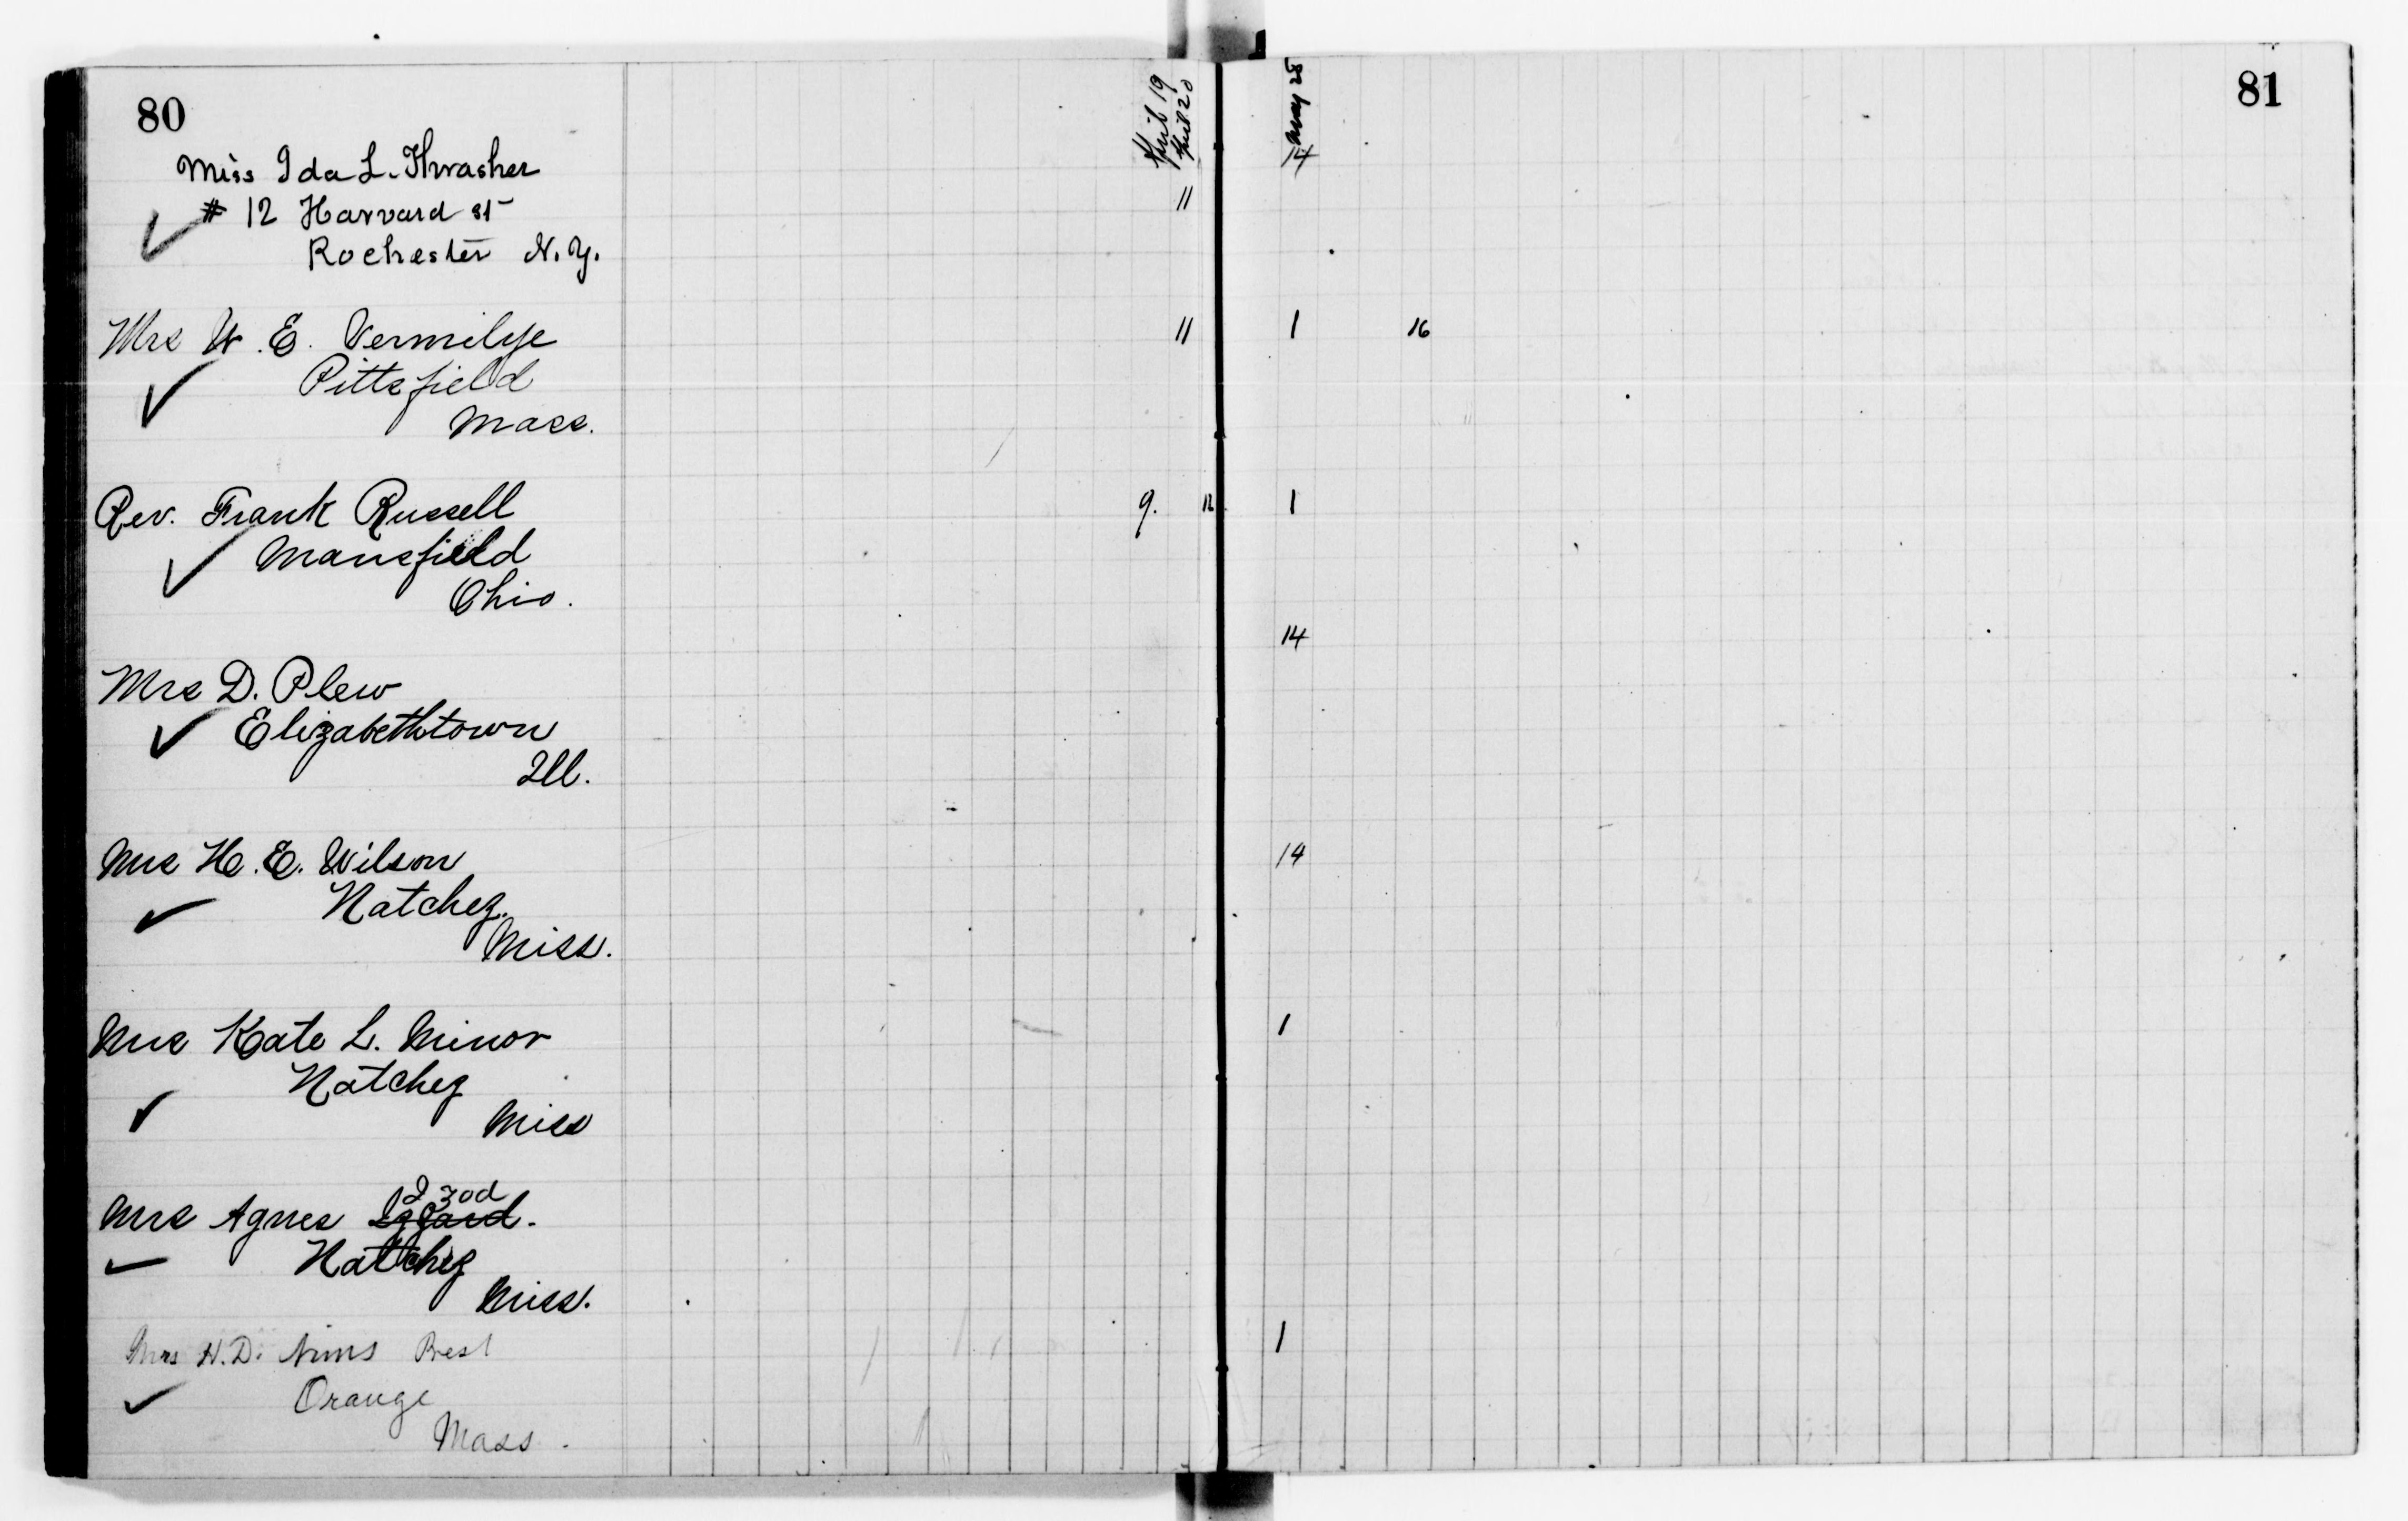 80
April 19
April 20
Miss Ida L. Thrasher
# 12 Harvard st
11
Rochester N.Y.
Mrs W. E. Vermilye
11
Pittsfield
Mass.
Rev. Frank Russell
9. 12
Mansfield
Ohio.
Mrs D. Plew
Elizabethtown
Ill.
Mrs H. E. Wilson
Natchez.
Miss.
Mrs Kate L. Minor
Natchez
Miss
Izod
Mrs Agnes
Natchez
Miss.
Mrs H. D. Nims Prest
Orange
Mass.
81
May 28
14
1 16
1
14
14
1
1